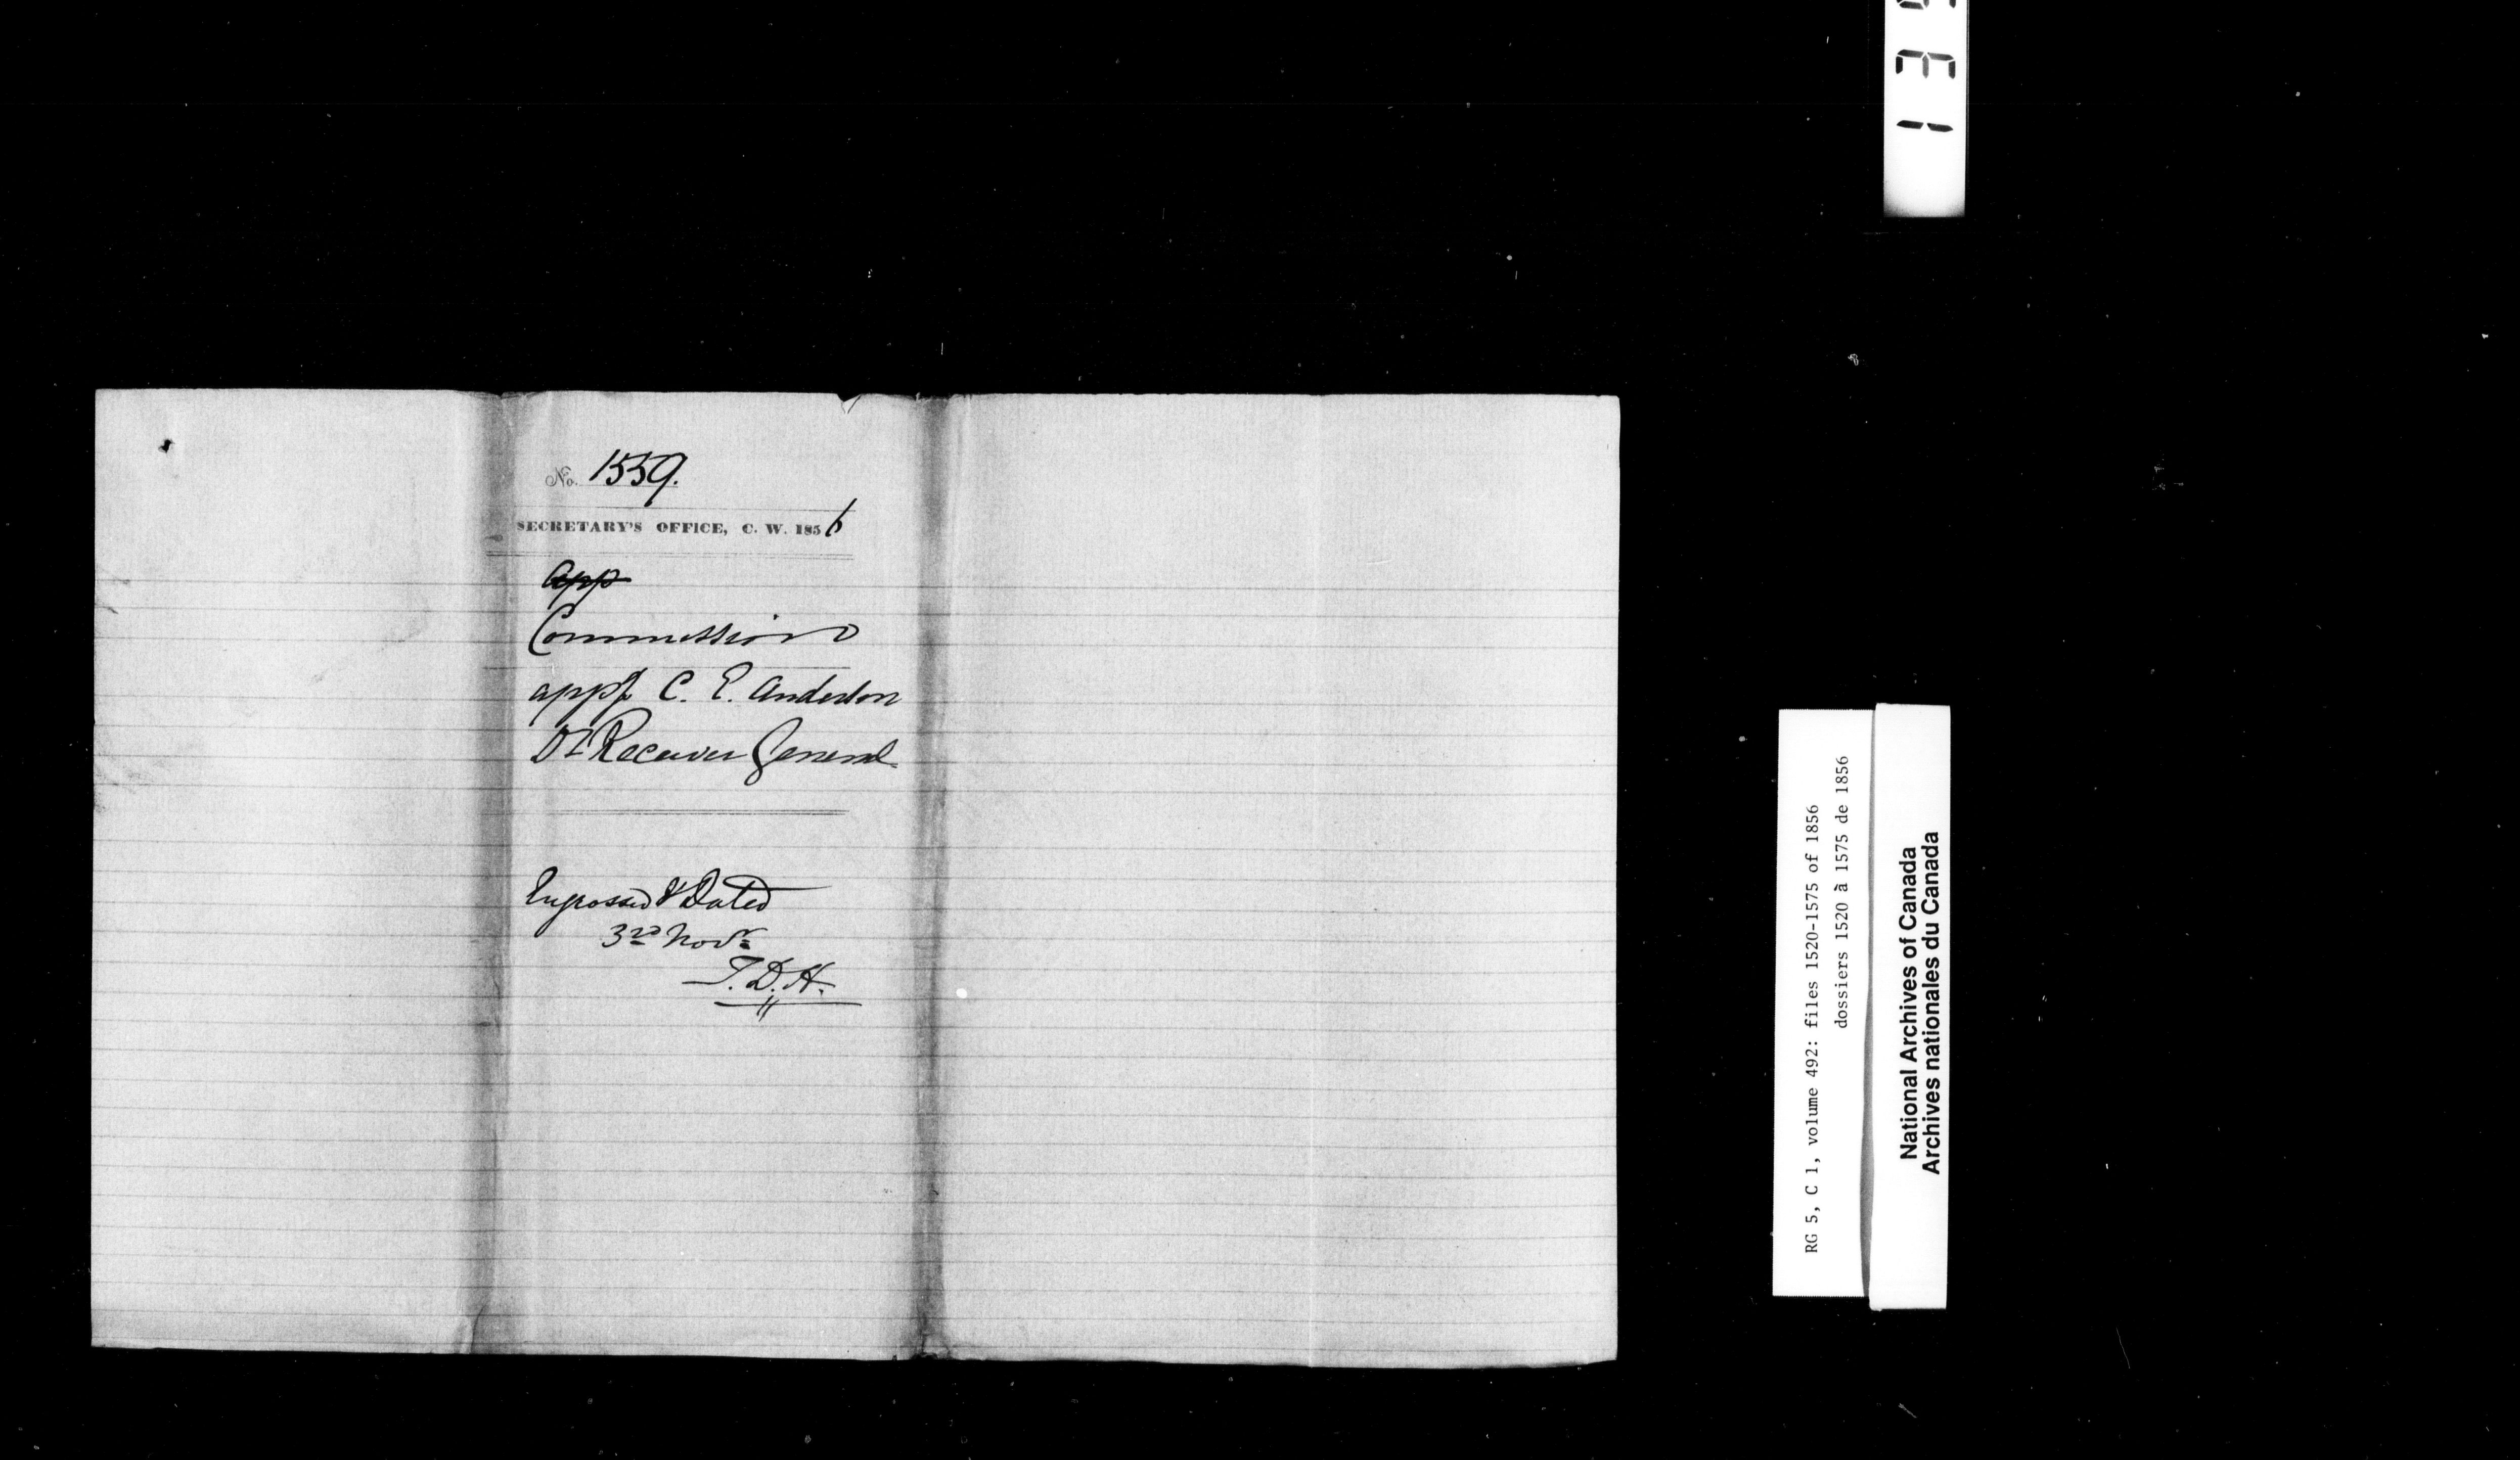 No. 1559.
SECRETARY'S OFFICE, C. W. 1856
app
Commission
appg C. E. Anderson
Dy Receiver General
Engrossed & Dated
3rd Novr
T. D. H.
RG 5, C 1, volume 492: files 1520-1575 of 1856
dossiers 1520 à 1575 de 1856
National Archives of Canada
Archives nationales du Canada